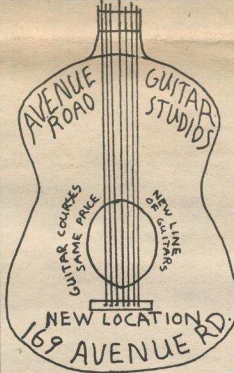 AVENUE
ROAD
GUITAR
STUDIOS
GUITAR COURSES
SAME PRICE
NEW LINE
OF GUITARS
NEW LOCATION
169 AVENUE RD.